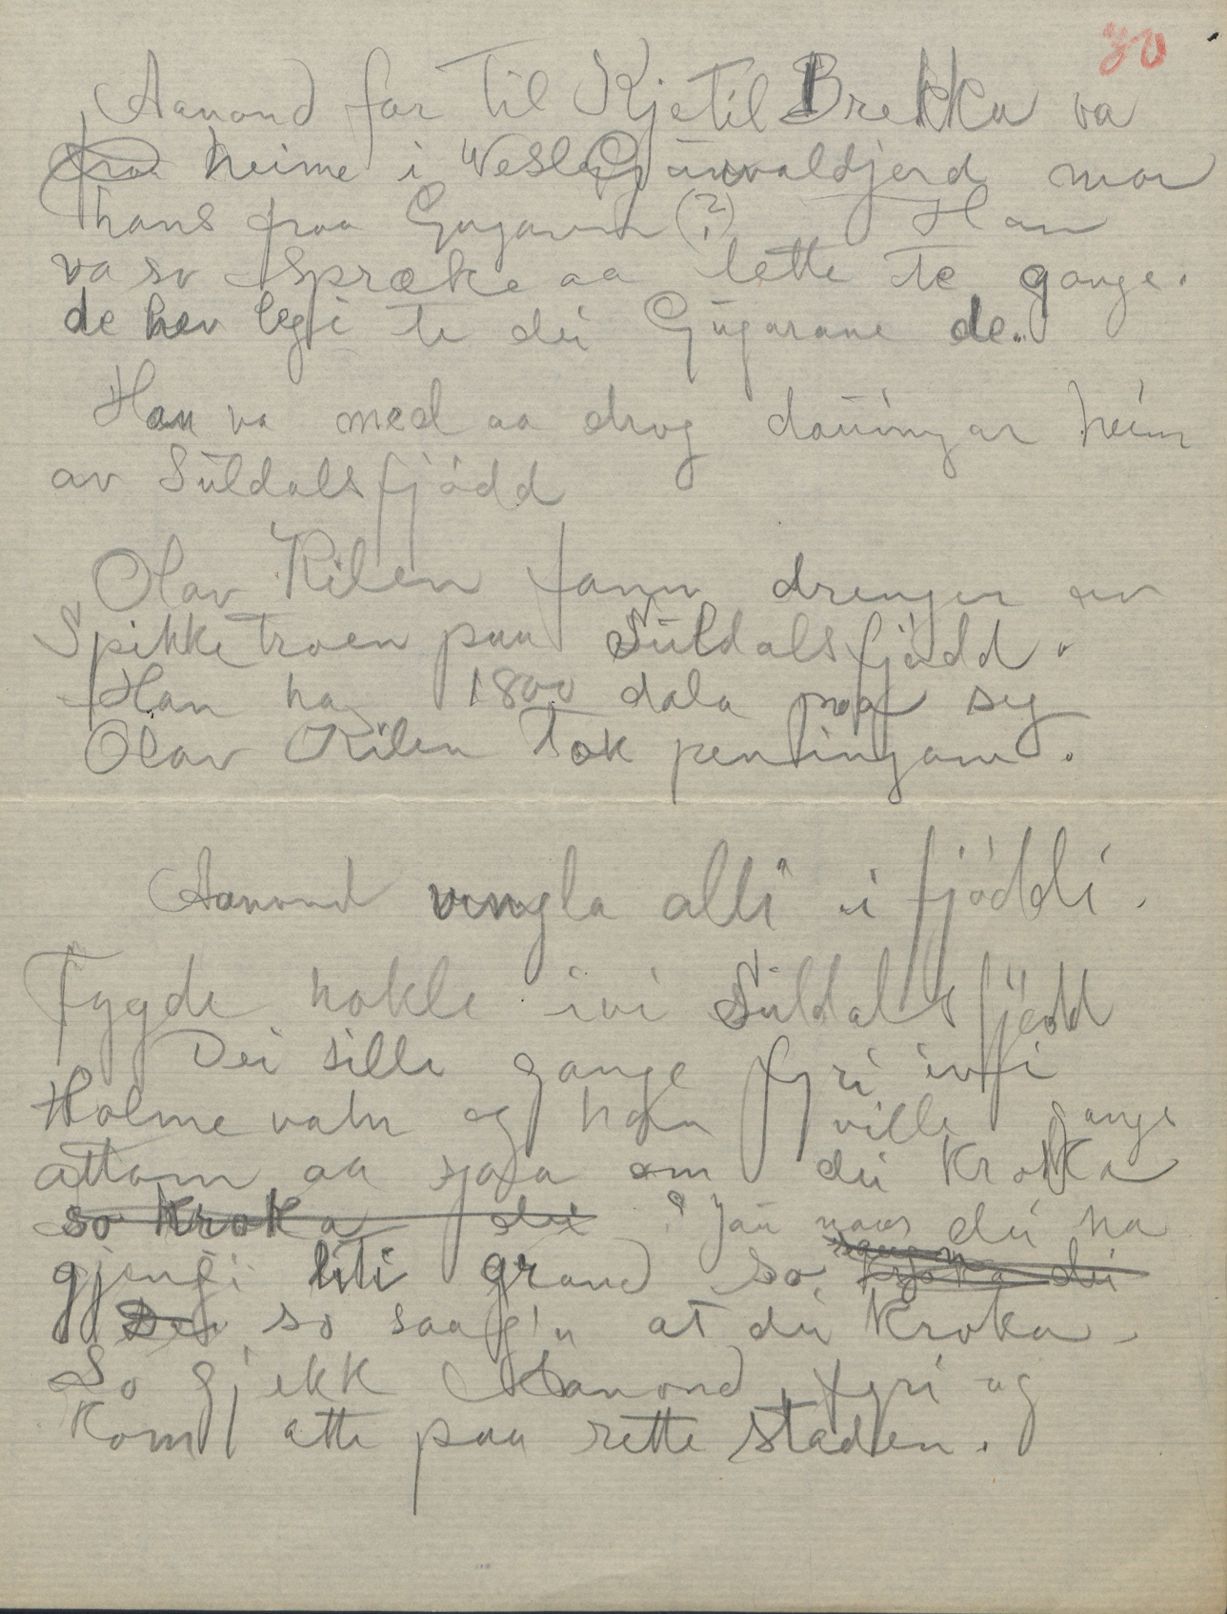 30
Aanond far til Kjetil Brekku va
fraa heime i Vesle Gunvaldjord mor
hans fraa Gugarden (?) Han
va so spræke aa lette te gange.
de hev legji te dei Gugarane de.
Han va med aa drog dauingar heim
av Suldalsfjødd
Olav Kilen fann drengen av
Spikketroen paa Suldalsfjødd.
Han ha 1800 dala paa seg
Olav Kilen tok pentingane.
Aanond vingla alli i fjøddi.
Fygde nokle ivi Suldalsfjødd
Dei sille gange fyri ivi
Holmevatn og han ville gange
attom aa sjaa om dei kroka
so kroka dei ? Jau naar dei ha
gjengi liti grand so
so saag'n at dei kroka.
So gjekk Aanond fyri og
kom atte paa rette staden.